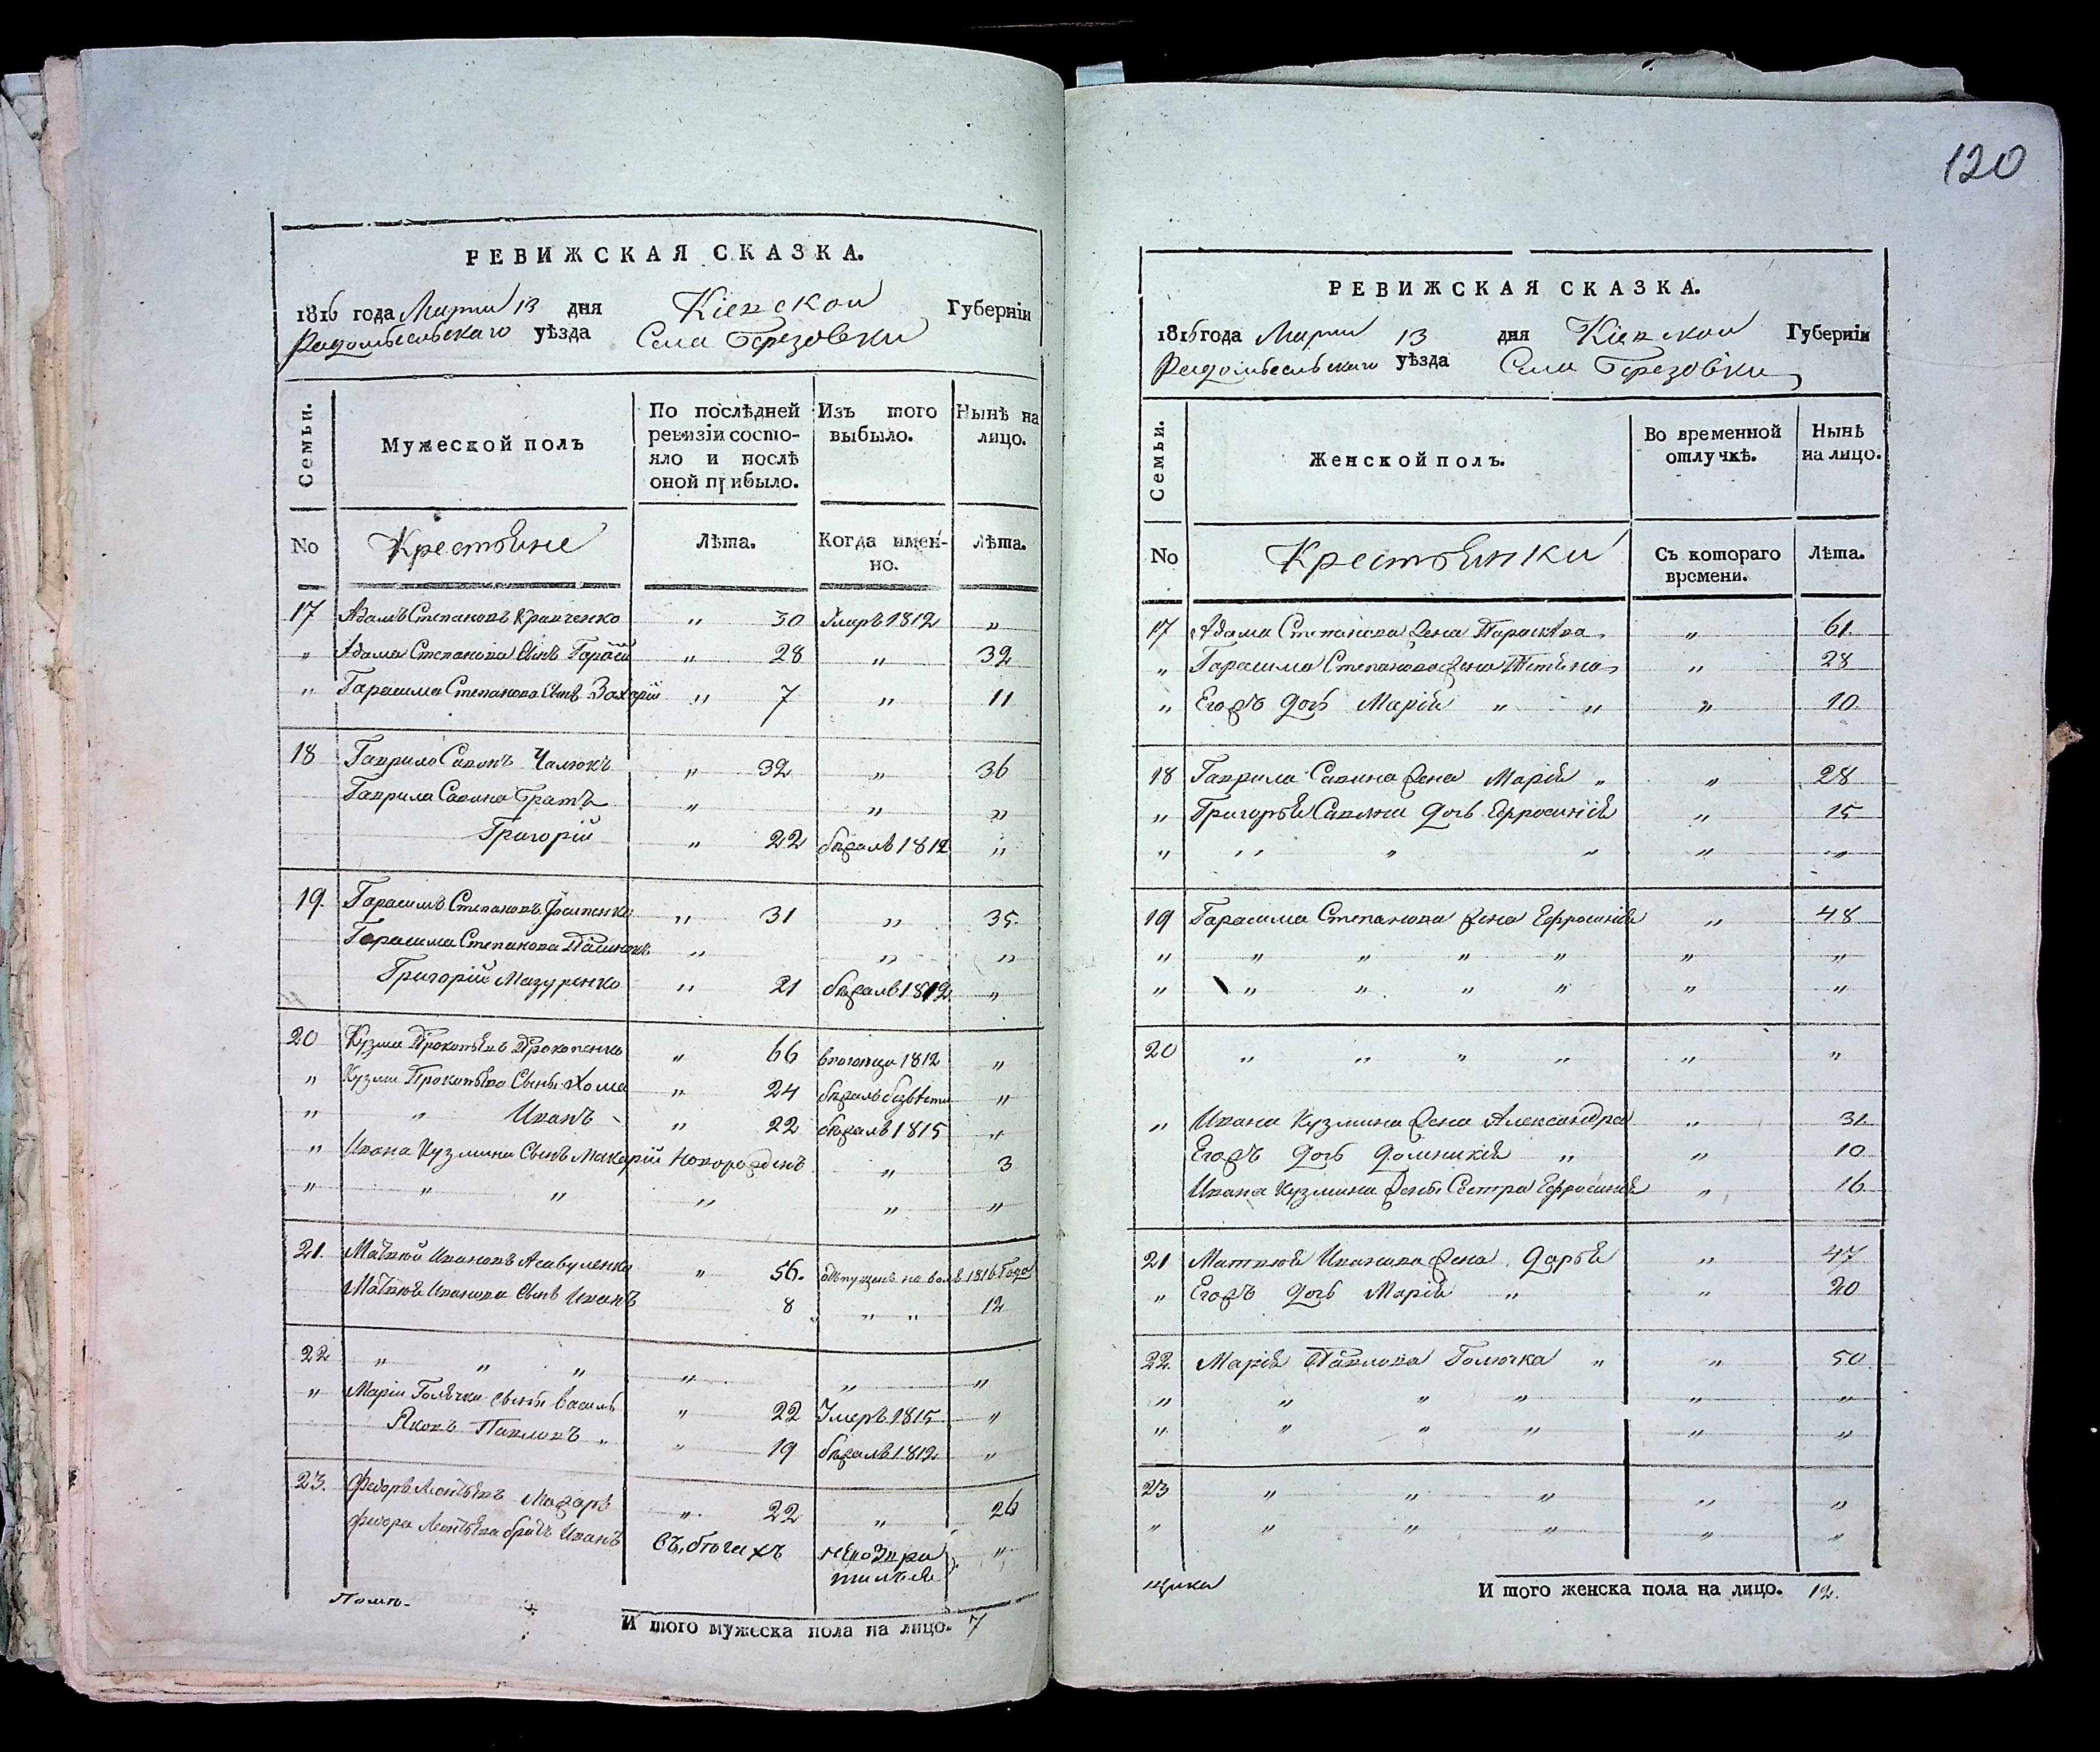 120
РЕВИЖСКАЯ СКАЗКА.
1816 года Марта 13 дня Кіевской Губерніи
Радомысльскаго уѣзда Села Березовки
Семьи.
Мужеской полъ
По послѣдней ревизіи состо-
яло и послѣ
оной прибыло.
Изъ того выбыло.
Нынѣ на лицо.
No Крестьяне Лѣта. Когда имен-
но. Лѣта.
17 Адамъ Степановъ Кравченко " 30 Умеръ 1812 "
" Адама Степанова Сынъ Гарасим " 28 " 32
" Гарасима Степанова Сынъ Захарій " 7 " 11
18 Гаврило Савонъ Чалюкъ " 32 " 36
Гаврила Савина Братъ " " "
Григорій " 22 бѣжалъ 1812 "
19. Гарасимъ Степановъ " 31 " 35
Гарасима Степанова Пасынокъ " " "
Григорій Мазуренко " 21 бѣжалъ 1812 "
20 Кузма Прокопьевъ Прокопенко " 66 1812 "
" Кузмы Прокопьева Сынъ Хома " 24 бѣжалъ "
" " Иванъ " 22 бѣжалъ 1815 "
" Ивана Кузмина Сынъ Макарій новорожденъ " 3
" " " " " "
21. Матвей Ивановъ Асавуленко " 56. отпущенъ на волю 1816 Года
Матвея Иванова Сынъ Иванъ 8 " " " 12
22 " " " " " "
" Маріи Голячки Сынъ Василь " 22 Умеръ 1815 "
Яковъ Павловъ " " 19 бѣжалъ 1812 "
23. Федоръ Леонтьевъ " 22 " 26
Федора Леонтьева братъ Иванъ Въ бѣгахъ "
Помѣ-
И того мужеска пола на лицо. 7
РЕВИЖСКАЯ СКАЗКА.
1816 года Марта 13 дня Кіевской Губерніи
Радомысльскаго уѣзда Села Березовки
Семьи.
Женской полъ.
Во временной отлучкѣ.
Нынѣ на лицо.
No Крестьянки Съ котораго времени. Лѣта.
17 Адама Степанова Жена Параскева " 61
" Гарасима Степанова Жена Тетяна " 28
" Егожъ дочь Марія " " " 10
18 Гаврила Савина Жена Марія " " 28
" Григорья Савина дочь Ефросинія " 15
" " " " " "
19 Гарасима Степанова Жена Ефросинія " 48
" " " " " " "
" " " " " " "
20 " " " " " "
" Ивана Кузмина Жена Александра " 31
Егожъ дочь Домникія " " 10
Ивана Кузмина Жены Сестра Ефросинія " 16
21 Матвея Иванова Жена Дарья " 47
" Егожъ дочь Марія " " 20
22. Марія Павлова Голячка " " 50
" " " " " "
" " " " " "
23 " " " " "
" " " " " "
щика
И того женска пола на лицо. 12.